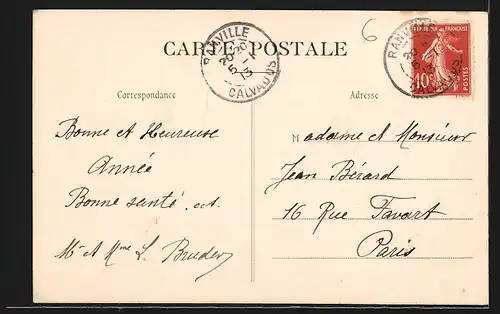 6
CARTE POSTALE
RANVILLE
20 20
5 - 1
13
CALVADOS
RÉPUBLIQUE FRANÇAISE
10c
POSTES
Correspondance
Adresse
Bonne et Heureuse
Année
Bonne santé, et.
Mr et Mme L. Bruder
Madame et Monsieur
Jean Bérard
16 Rue Favart
Paris